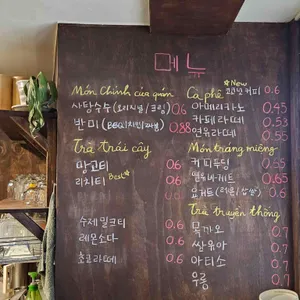 메뉴
Món Chính của quán
사탕수수 (오리지널/크림) 0.6
반미 0.88
Trà trái cây
망고티 0.6
리치티 Best 0.6
수제밀크티 0.6
레몬소다 0.6
초코라떼 0.6
Cà phê
New 코코넛커피 0.6
아메리카노 0.45
카페라떼 0.53
연유라떼 0.55
Món tráng miệng
커피푸딩 0.65
0.65
요거트 0.6
Trà truyền thống
0.7
쌀유아 0.7
아티소 0.7
우롱 0.7